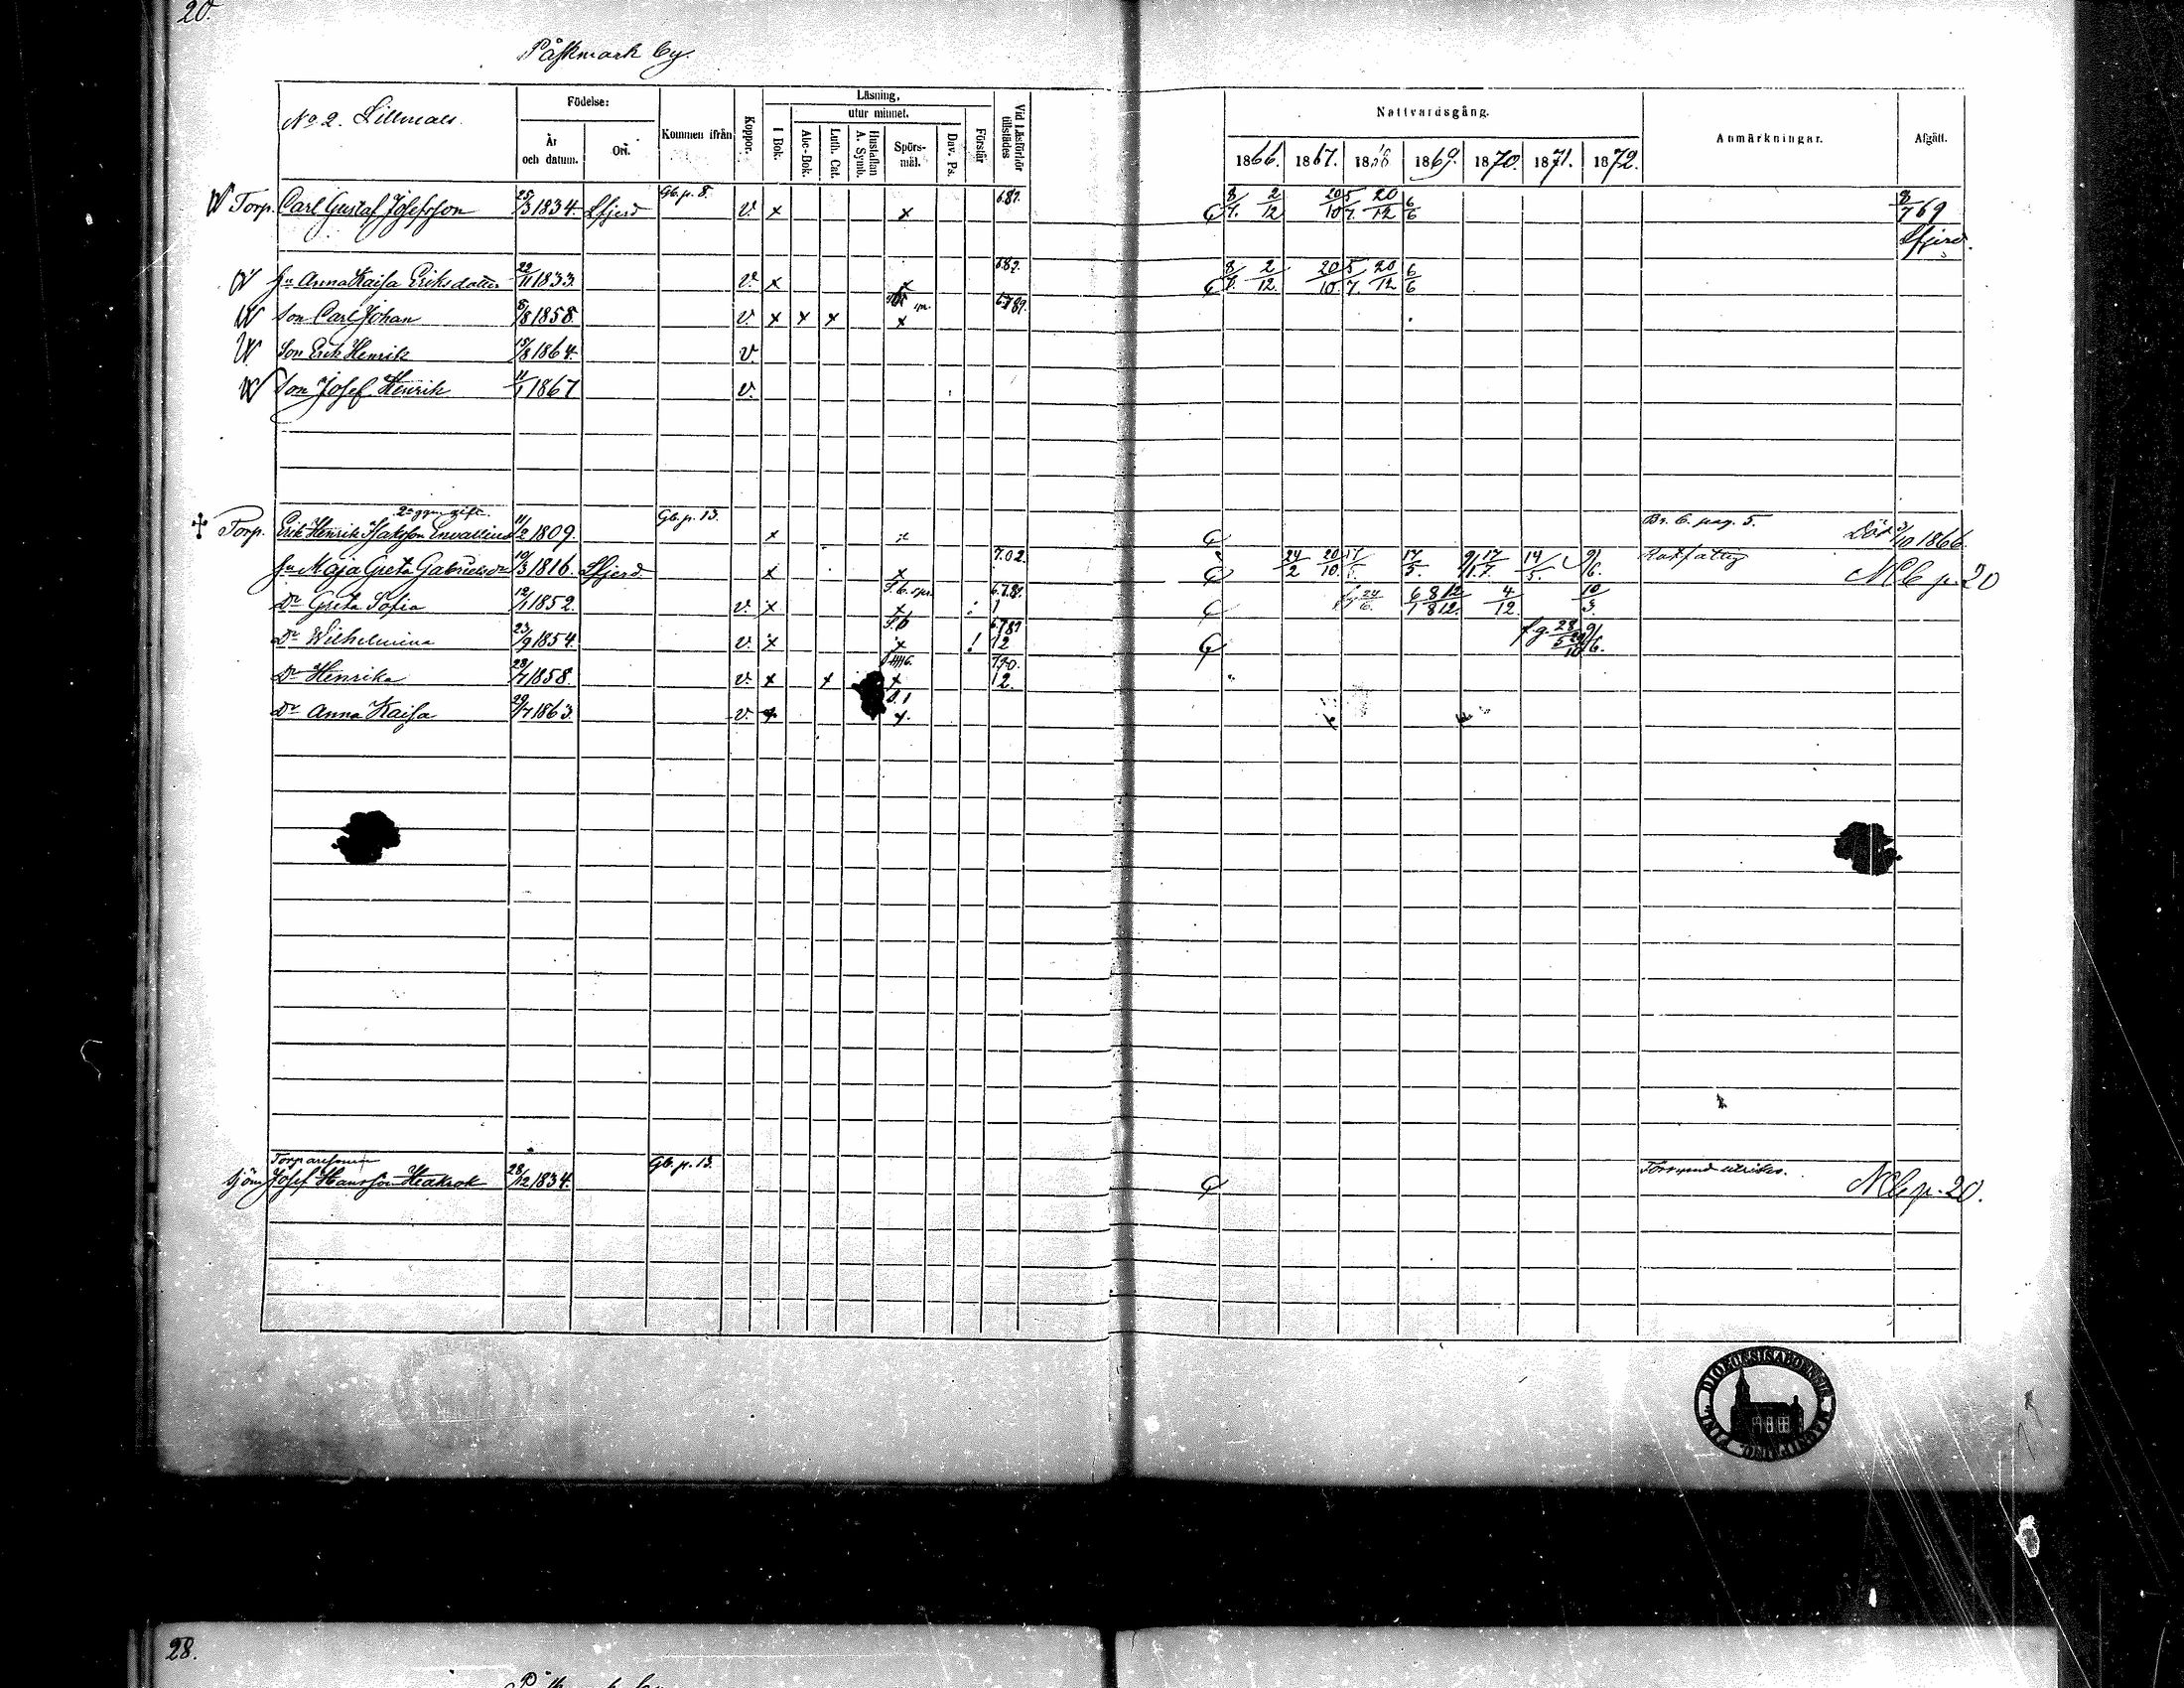 20.
Påskmark by.
No 2. Lillmåls.
Födelse:
År och datum.
Ort.
Kommen ifrån
Koppor.
Läsning,
I Bok.
utur minnet.
Abc-Bok.
Luth. Cat.
Hustaflan A. Symb.
Spörs-mål.
Dav. Ps.
Förstår
Vid Läsförhör tillstädes
Nattvardsgång.
1866. 1867. 1868 1869. 1870. 1871. 1872.
Anmärkningar.
Afgått.
Torp. Carl Gustaf Josefsson 25/3 1834 Lfjerd Gb. p. 8. v. x x 687. 8/7. 2/12 20/10 5/7. 20/12 6/6 8/7 69
Lfjerd.
hu Anna Kaisa Eriksdotter 22/11 1833. v. x x 682. 8/7. 2/12. 20/10. 5/7. 20/12 6/6
Son Carl Johan 8/8 1858. v. x x x x 6789.
Son Erik Henrik 15/8 1864 v.
Son Josef Henrik 11/1 1867 v.
2a ggn gift
Torp. Erik Henrik Isaksson Envallius 11/2 1809. Gb. p. 13. x x Br. 6. pag. 5. Död 3/10 1866.
hu Maja Greta Gabrielsdr 10/3 1816. Lfjerd x x 7.02. 24/2 20/10. 17/5. 17/5. 9/1 17/7 14/5. 9/6. Rotfattig NCb p. 20
Dr Greta Sofia 12/1 1852. v. x x 24/6. 6/1 8/8 12/12. 4/12. 10/3.
Dr Wilhelmina 23/9 1854. v. x x ! 6787 12 f.g. 28/5 9/6.
Dr Henrika 28/7 1858. v. x x x 7.70. 12.
Dr Anna Kaisa 29/7 1863. v. x x
Torparesonen
Sjöm Josef Hansson Hedkrok 28/12 1834. Gb. p. 13. Försvund utrikes. NCb p. 20.
DIOECESIS ABOENSIS MAGNI PRINC. FINL.
28.